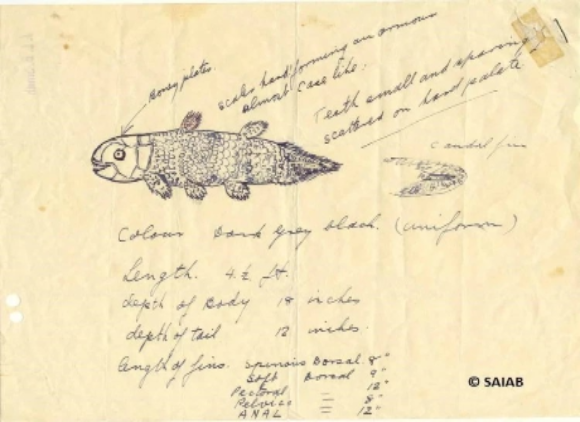 Boney plates.
scales hard forming an armour
almost case like.
Teeth small and
scattered on hard palate
Caudal fin
Colour Dark Grey black. (uniform)
Length. 4½ ft.
depth of Body 18 inches
depth of tail 12 inches.
length of fins. Spinous Dorsal 8"
Soft Dorsal 9"
Pectoral 12"
Pelvic = 8"
ANAL = 12"
© SAIAB